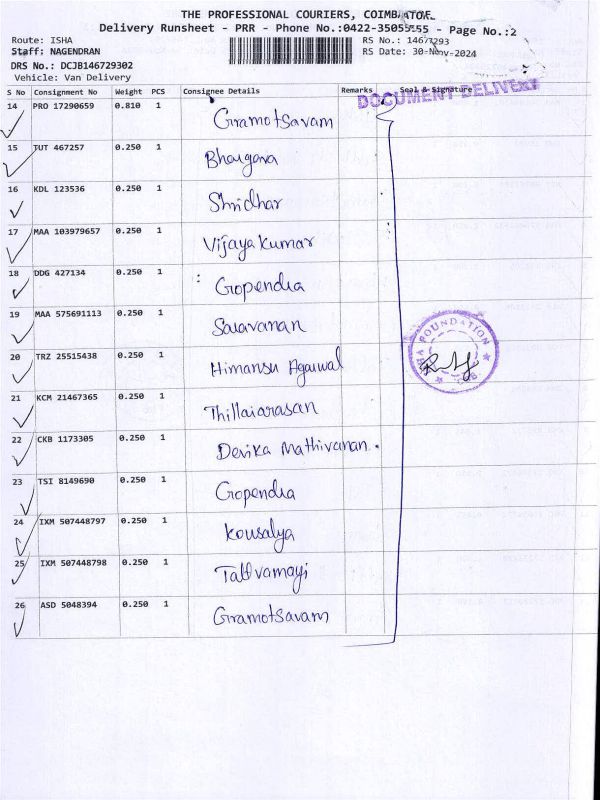 THE PROFESSIONAL COURIERS, COIMBATORE
Delivery Runsheet - PRR - Phone No.:0422-3505555 - Page No.:2
Route: ISHA
Staff: NAGENDRAN
DRS No.: DCJB146729302
Vehicle: Van Delivery
RS No.: 14673293
RS Date: 30-Nov-2024
DOCUMENT DELIVERY
S No Consignment No Weight PCS Consignee Details Remarks Seal & Signature
14 PRO 17290659 0.810 1 Gramotsavam
15 TUT 467257 0.250 1 Bhargava
16 KDL 123536 0.250 1 Shridhar
17 MAA 103979657 0.250 1 Vijaya Kumar
18 DDG 427134 0.250 1 Gopendra
19 MAA 575691113 0.250 1 Saravanan
20 TRZ 25515438 0.250 1 Himansu Agarwal
21 KCM 21467365 0.250 1 Thillaiarasan
22 CKB 1173305 0.250 1 Devika Mathivanan.
23 TSI 8149690 0.250 1 Gopendra
24 IXM 507448797 0.250 1 Kousalya
25 IXM 507448798 0.250 1 Tattvamayi
26 ASD 5048394 0.250 1 Gramotsavam
ISHA FOUNDATION